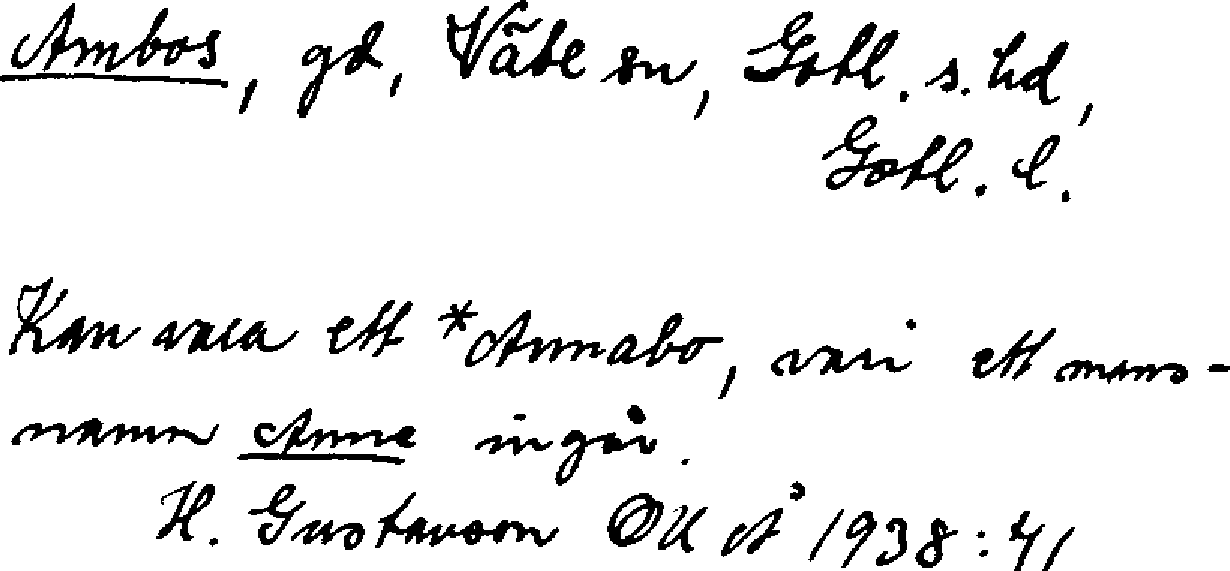 Ambos, gd, Väte sn, Gotl. s. hd,
Gotl. l.
Kan vara ett *Annabo, vari ett mans-
namn Anne ingår.
H. Gustavson OUÅ 1938:41